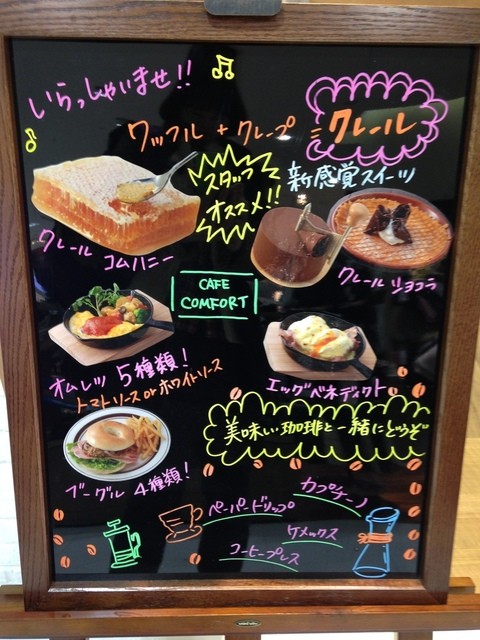 いらっしゃいませ!!
ワッフル + クレープ = クレール
スタッフ
オススメ!!
新感覚スイーツ
クレール コムハニー
クレールショコラ
CAFE
COMFORT
オムレツ 5種類!
トマトソース or ホワイトソース
エッグベネディクト
美味しい珈琲と一緒にどうぞ
ブーグル 4種類!
ペーパードリップ
カプチーノ
ケメックス
コーヒープレス